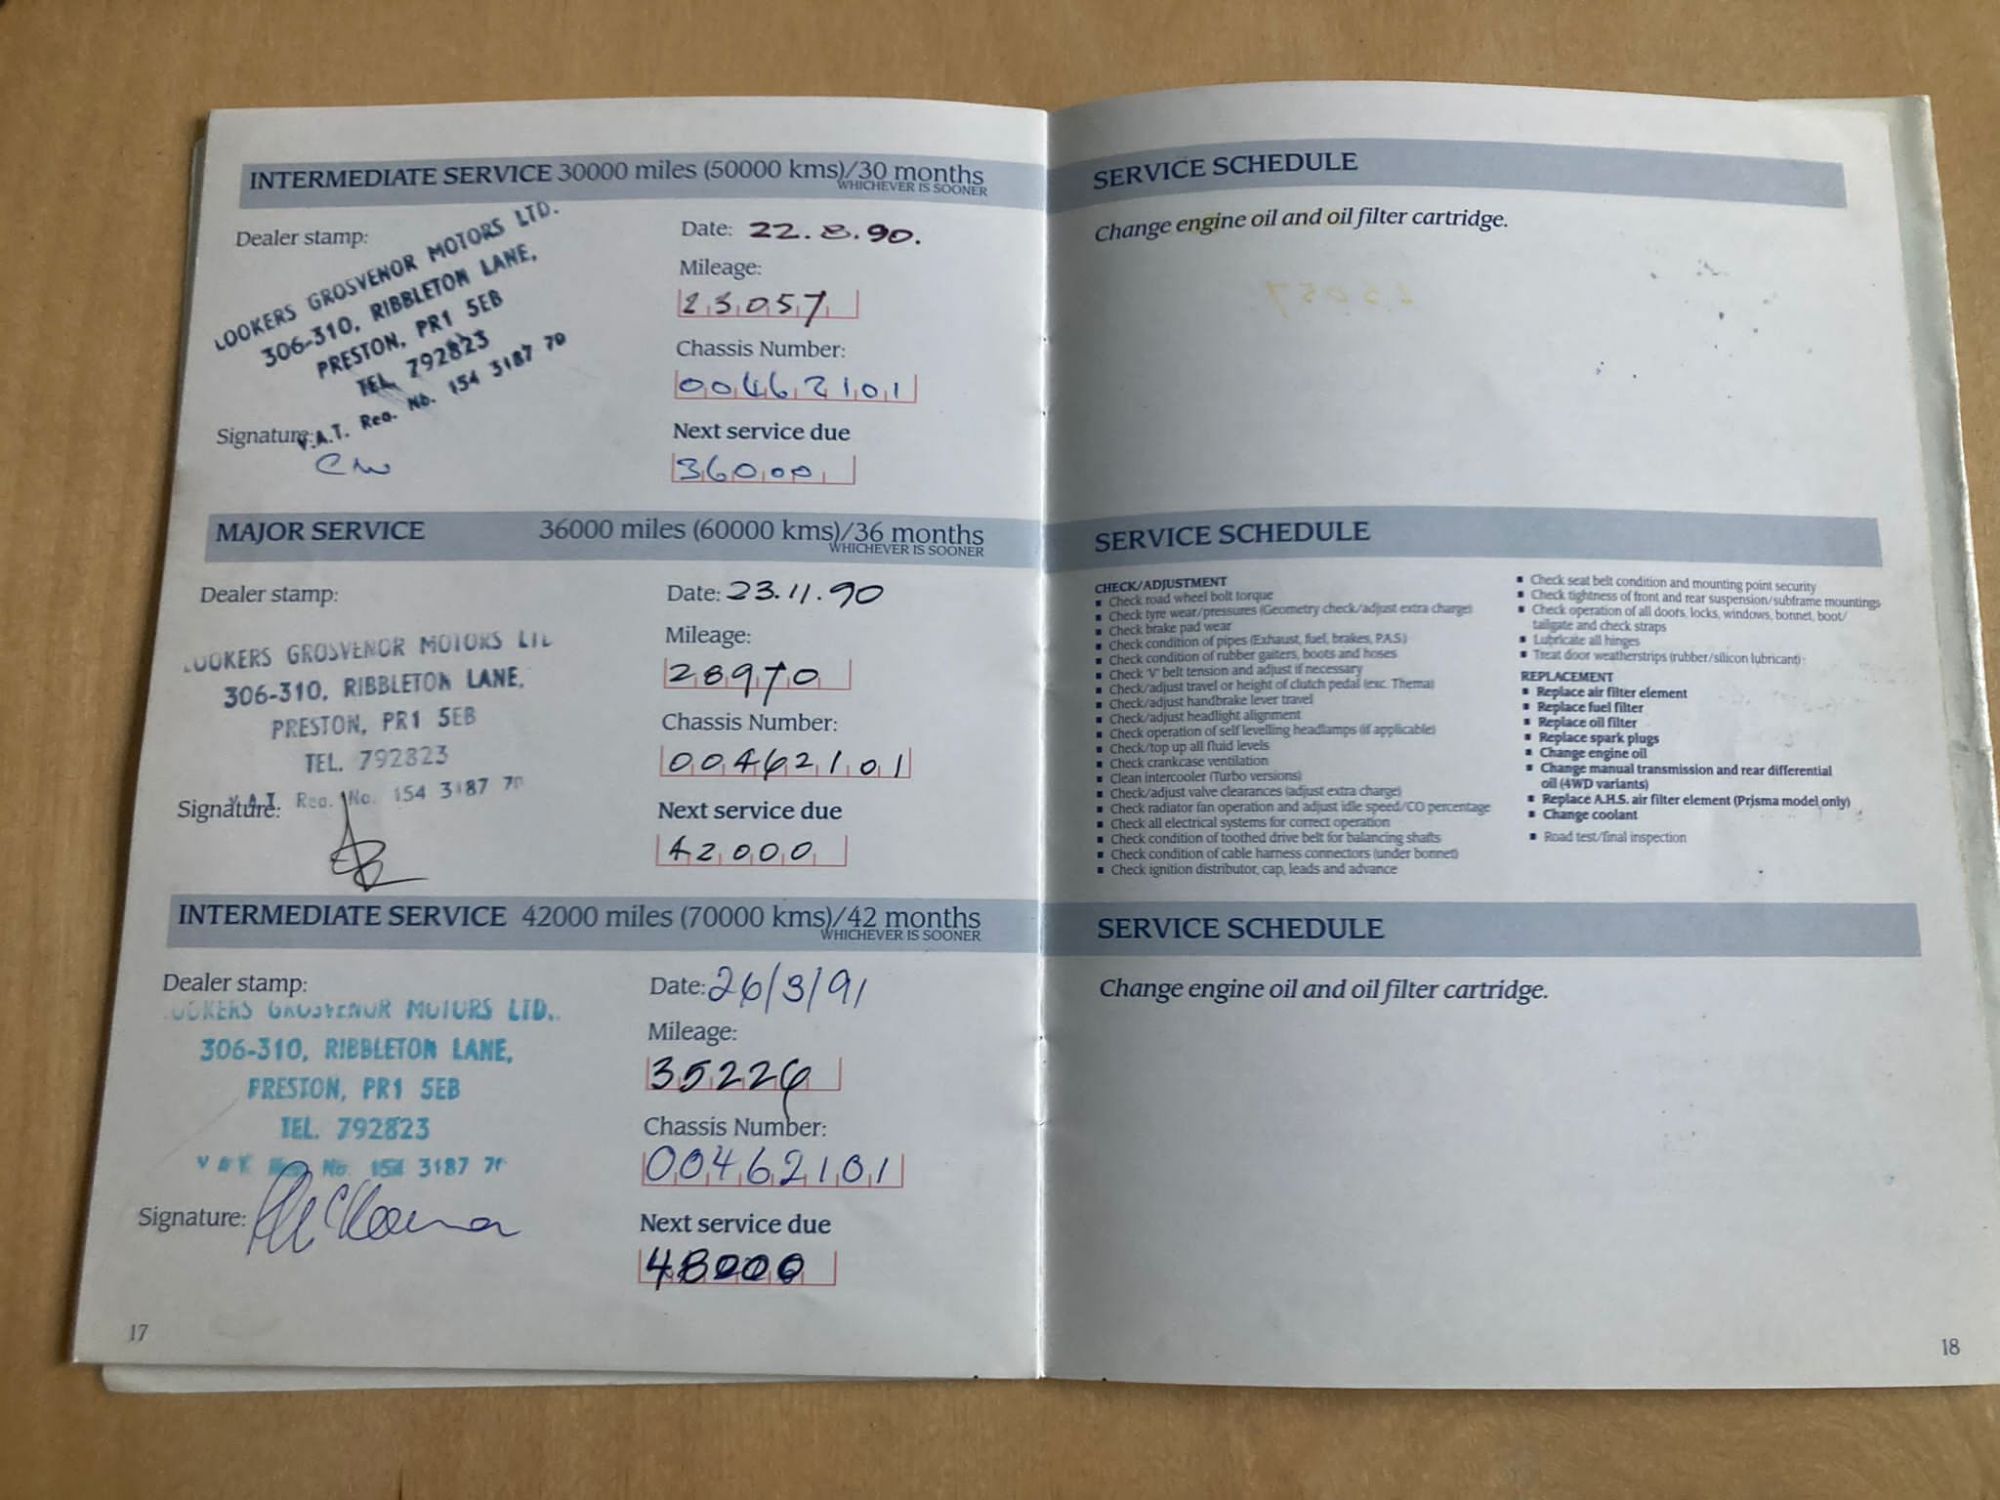 INTERMEDIATE SERVICE 30000 miles (50000 kms)/30 months
WHICHEVER IS SOONER
Dealer stamp:
LOOKERS GROSVENOR MOTORS LTD.
306-310, RIBBLETON LANE,
PRESTON, PR1 5EB
TEL. 792823
V.A.T. Reg. No. 154 3187 70
Signature:
Date: 22.8.90.
Mileage:
23057
Chassis Number:
00462101
Next service due
36000
MAJOR SERVICE 36000 miles (60000 kms)/36 months
WHICHEVER IS SOONER
Dealer stamp:
LOOKERS GROSVENOR MOTORS LTD
306-310, RIBBLETON LANE,
PRESTON, PR1 5EB
TEL. 792823
V.A.T. Reg. No. 154 3187 70
Signature:
Date: 23.11.90
Mileage:
28970
Chassis Number:
00462101
Next service due
42000
INTERMEDIATE SERVICE 42000 miles (70000 kms)/42 months
WHICHEVER IS SOONER
Dealer stamp:
LOOKERS GROSVENOR MOTORS LTD.
306-310, RIBBLETON LANE,
PRESTON, PR1 5EB
TEL. 792823
V A T No. 154 3187 70
Signature:
Date: 26/3/91
Mileage:
35224
Chassis Number:
00462101
Next service due
48000
17
SERVICE SCHEDULE
Change engine oil and oil filter cartridge.
SERVICE SCHEDULE
CHECK/ADJUSTMENT
▪ Check road wheel bolt torque
▪ Check tyre wear/pressures (Geometry check/adjust extra charge)
▪ Check brake pad wear
▪ Check condition of pipes (Exhaust, fuel, brakes, P.A.S.)
▪ Check condition of rubber gaiters, boots and hoses
▪ Check 'V' belt tension and adjust if necessary
▪ Check/adjust travel or height of clutch pedal (exc. Thema)
▪ Check/adjust handbrake lever travel
▪ Check/adjust headlight alignment
▪ Check operation of self levelling headlamps (if applicable)
▪ Check/top up all fluid levels
▪ Check crankcase ventilation
▪ Clean intercooler (Turbo versions)
▪ Check/adjust valve clearances (adjust extra charge)
▪ Check radiator fan operation and adjust idle speed/CO percentage
▪ Check all electrical systems for correct operation
▪ Check condition of toothed drive belt for balancing shafts
▪ Check condition of cable harness connectors (under bonnet)
▪ Check ignition distributor, cap, leads and advance
▪ Check seat belt condition and mounting point security
▪ Check tightness of front and rear suspension/subframe mountings
▪ Check operation of all doors, locks, windows, bonnet, boot/
tailgate and check straps
▪ Lubricate all hinges
▪ Treat door weatherstrips (rubber/silicon lubricant)
REPLACEMENT
▪ Replace air filter element
▪ Replace fuel filter
▪ Replace oil filter
▪ Replace spark plugs
▪ Change engine oil
▪ Change manual transmission and rear differential
oil (4WD variants)
▪ Replace A.H.S. air filter element (Prisma model only)
▪ Change coolant
▪ Road test/final inspection
SERVICE SCHEDULE
Change engine oil and oil filter cartridge.
18